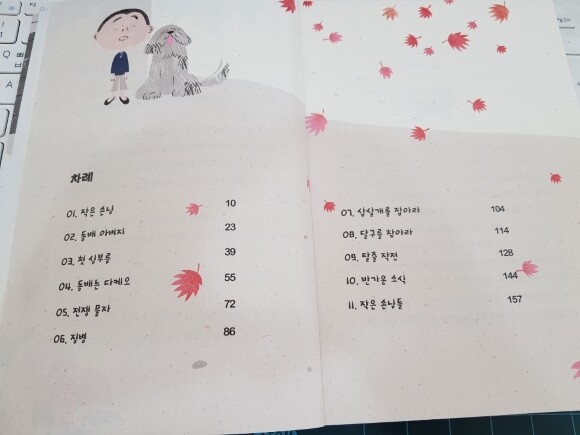 차례
01. 작은 손님 10
02. 동배 아버지 23
03. 첫 심부름 39
04. 동배는 다케오 55
05. 전쟁 물자 72
06. 징병 86
07. 삽살개를 잡아라 104
08. 달구를 잡아라 114
09. 탈출 작전 128
10. 반가운 소식 144
11. 작은 손님들 157